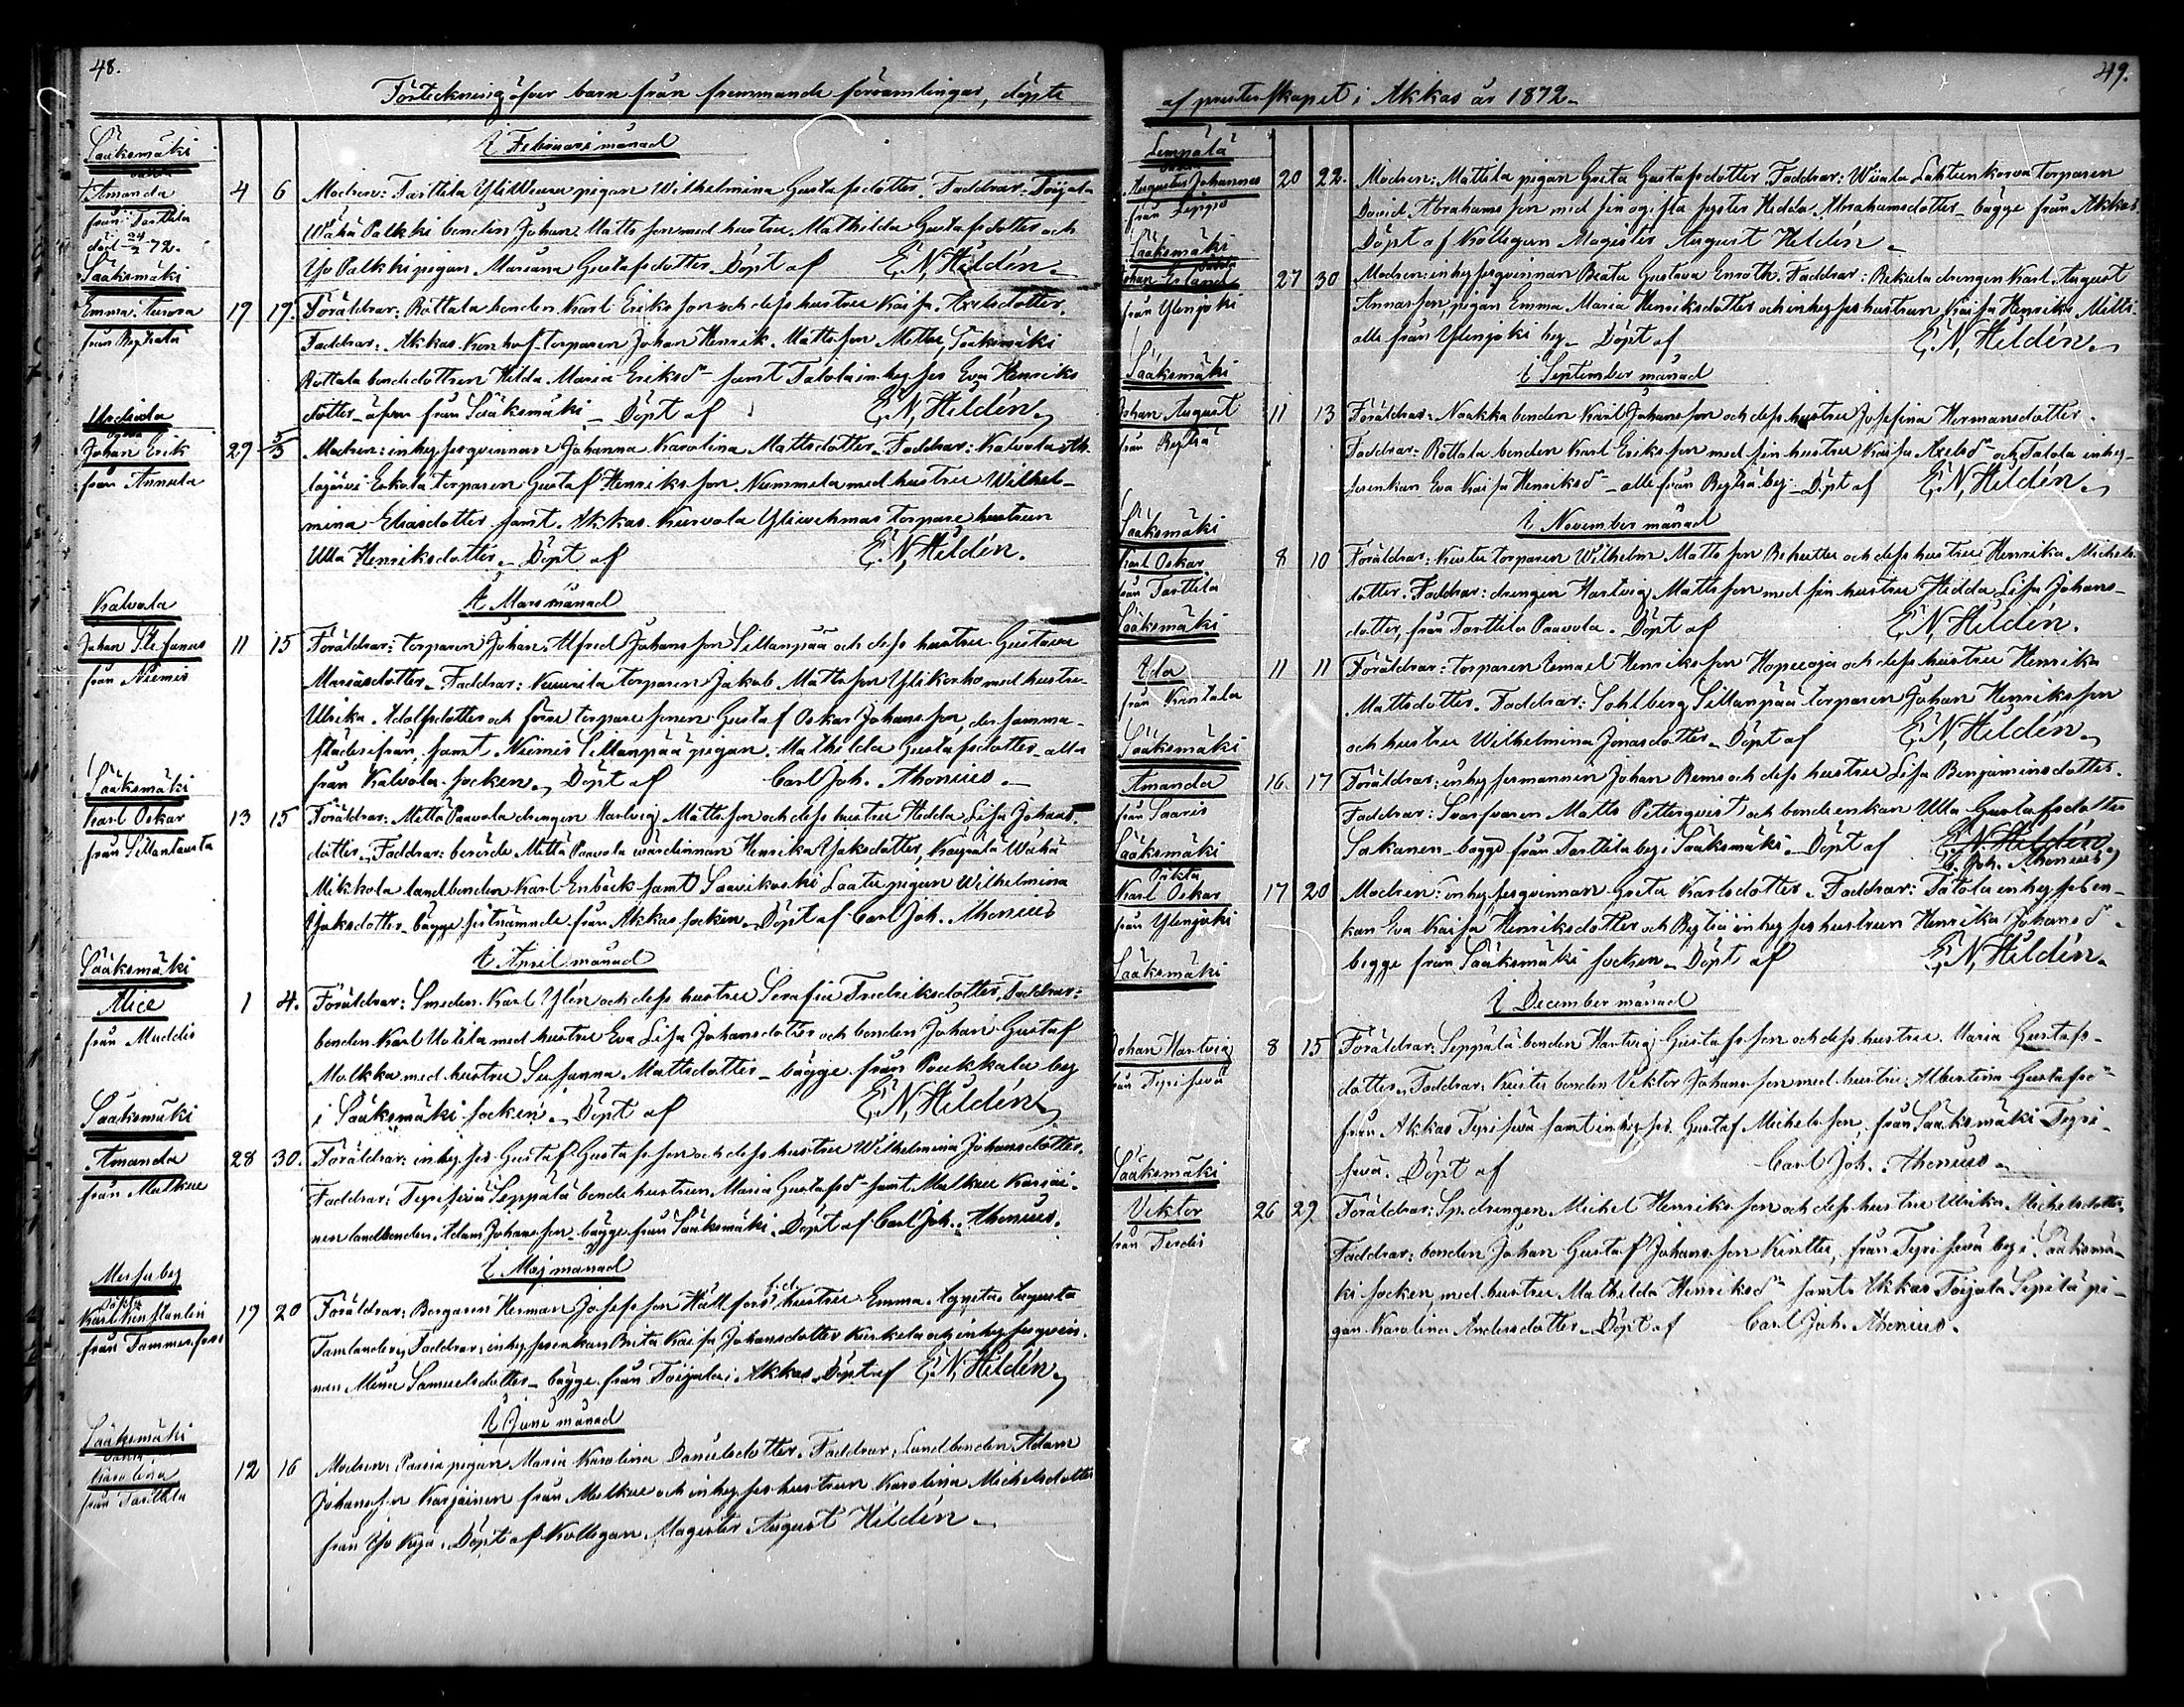 48.
Förteckning öfver barn från fremmande församlingar, döpte
I Februari månad
Sääksmäki
oäkta
Amanda
från Tarttila
död 24/2 72.
4 6 Modren: Tarttila Yliwenna pigan Wilhelmina Gustafsdotter. Faddrar: Toijala
Wähä Palkki bonden Johan Mattsson med hustru Mathilda Gustafsdotter och
Yso Palkki pigan Mariana Gustafsdotter. Döpt af E. N. Hildén.
Sääksmäki
Emma Aurora
19 19. Föräldrar: Rottala bonden Karl Eriksson och dess hustru Kaisa Axelsdotter.
Faddrar: Akkas torparen Johan Henrik Mattsson Metter, Sääksmäki
Rottala bondedottren Hilda Maria Eriksdr samt Talola inhyses Eva Henriks
dotter äfven från Sääksmäki. Döpt af E. N. Hildén.
Urdiala
oäkta
Johan Erik
från Annula
29 5/3 Modren: inhysesqvinnan Johanna Karolina Mattsdotter. Faddrar: Kalvola Ah
lajärvi Erkola torparen Gustaf Henriksson Nummela med hustru Wilhel-
mina Eliasdotter samt Akkas Kurvola torpare hustrun
Ulla Henriksdotter. Döpt af E. N. Hildén.
I Mars månad
Kalvola
Johan Stefanus
från Niemis
11 15 Föräldrar: torparen Johan Alfred Johansson Sillanpää och dess hustru Gustava
Mariasdotter. Faddrar: torparen Jakob Mattsson Ylikorho med hustru
Ulrika Adolfsdotter och förre torpare sonen Gustaf Oskar Johansson, der samma-
städes ifrån, samt Niemis Sillanpää pigan Mathilda Gustafsdotter alla
från Kalvola socken. Döpt af Carl Joh. Thenius.
Sääksmäki
Karl Oskar
från Sillantausta
13 15 Föräldrar: Mettä Paavola drengen Hartvig Mattsson och dess hustru Hedda Lisa Johans-
dotter. Faddrar: berörde Mettä Paavola wärdinnan Henrika Isaksdotter, Wähä
Mikkola landbonden Karl Enbäck samt Saarikoski Laatu pigan Wilhelmina
Isaksdotter bägge sistnämnde från Akkas socken. Döpt af Carl Joh. Thenius
I April månad
Sääksmäki
Alice
från Muddis
1 4. Föräldrar: Smeden Karl Ylén och dess hustru Serafia Fredriksdotter. Faddrar:
bonden Karl Uotila med hustru Eva Lisa Johansdotter och bonden Johan Gustaf
Molkka med hustru Susanna Mattsdotter bägge från Poukkala by
i Sääksmäki socken. Döpt af E. N. Hildén.
Sääksmäki
Amanda
från Matkue
28 30. Föräldrar: inhyses Gustaf Gustafsson och dess hustru Wilhelmina Johansdotter.
Faddrar: Tyrisevä Seppälä bonde hustrun Maria Gustafsdr samt Matkue Karjai-
nen landbonden Adam Johansson bägge från Sääksmäki. Döpt af Carl Joh. Thenius.
I Maj månad
Messuby
oäkta
Karl Konstantin
från Tammerfors
19 20 Föräldrar: Borgaren Herman Josefsson Hällfors f.d. hustru Emma Agneta Augusta
Tamlander, Faddrar: inhysesenkan Brita Kaisa Johansdotter Kurkela och inhysesqvin-
nan Mina Samuelsdotter bägge från Toijala i Akkas. Döpt af E. N. Hildén.
I Juni månad
Sääksmäki
oäkta
Karolina
från Tarttila
12 16 Modren: pigan Maria Karolina Danielsdotter. Faddrar: Landbonden Adam
Johansson Karjainen från Matkue och inhyses hustrun Karolina Michelsdotter
från Yso Kyrö. Döpt af Kollegan Magister August Hildén.
49.
af presterskapet i Akkas år 1872.
Lempälä
oäkta
Augustus Johannes
20 22. Modren: Mattila pigan Greta Gustafsdotter. Faddrar: Wiiala Lahteenkorva torparen
David Abrahamsson med sin ogifta syster Hedda Abrahamsdotter bägge från Akkas.
Döpt af Kollegan Magister August Hildén.
Sääksmäki
oäkta
Johan Erland
från Ylenjoki
27 30 Modren: inhysesqvinnan Beata Gustava Enroth. Faddrar: Rekula drengen Karl August
Annasson, pigan Emma Maria Henriksdotter och inhyses hustrun Kaisa Henrika Mitti
alle från Ylenjoki by. Döpt af E. N. Hildén.
I September månad
Sääksmäki
Johan August
11 13 Föräldrar: Noakka bonden Karl Johansson och dess hustru Josefina Hermansdotter.
Faddrar: Rottala bonden Karl Eriksson med sin hustru Kaisa Axelsdr och Talola inhy-
sesenkan Eva Kaisa Henriksdr alle från by. Döpt af E. N. Hildén.
I November månad
Sääksmäki
Karl Oskar
från Tarttila
8 10 Föräldrar: torparen Wilhelm Mattsson och dess hustru Henrika Michels-
dotter. Faddrar: drengen Hartvig Mattsson med sin hustru Hedda Lisa Johans-
dotter, från Tarttila Paavola. Döpt af E. N. Hildén.
Sääksmäki
Ida
11 11 Föräldrar: torparen Ismael Henriksson Hopeoja och dess hustru Henrika
Mattsdotter. Faddrar: Sohlberg Sillanpää torparen Johan Henriksson
och hustru Wilhelmina Jonasdotter. Döpt af E. N. Hildén.
Sääksmäki
Amanda
från Saaris
16. 17 Föräldrar: inhysesmannen Johan Rems och dess hustru Lisa Benjaminsdotter.
Faddrar: Svarfvaren Matts Petterqvist och bondeenkan Ulla Gustafsdotter
Sakanen bägge från Tarttila by i Sääksmäki. Döpt af E. N. Hildén
C. Joh. Thenius
Sääksmäki
Oäkta
Karl Oskar
från Ylenjoki
17 20 Modren: inhysesqvinnan Greta Karlsdotter. Faddrar: Tatola inhyses en-
kan Eva Kaisa Henriksdotter och inhyses hustrun Henrika Johansdr
begge från Sääksmäki socken. Döpt af E. N. Hildén.
I December månad
Sääksmäki
Johan Hartvig
från Tyrisevä
8 15 Föräldrar: Seppälä bonden Hartvig Gustafsson och dess hustru Maria Gustafs-
dotter. Faddrar: bonden Viktor Johansson med hustru Albertina Gustafsdr
från Akkas Tyrisevä samt inhyses Gustaf Michelsson, från Sääksmäki Tyri-
sevä. Döpt af Carl Joh. Thenius.
Sääksmäki
Viktor
från Terdis
26 29 Föräldrar: Sp. drengen Michel Henriksson och dess hustru Ulrika Michelsdotter,
Faddrar: bonden Johan Gustaf Johansson Knutte, från Tyrisevä by i Sääksmä-
ki socken, med hustru Mathilda Henriksdr samt Akkas Toijala Sipilä pi-
gan Karolina Andersdotter. Döpt af Carl Joh. Thenius.